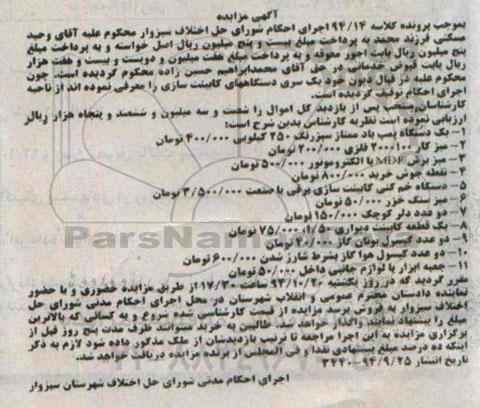 آگهی مزایده
بموجب پرونده کلاسه ۹۴/۱۴ اجرای احکام شورای حل اختلاف سبزوار محکوم علیه آقای وحید
مسکنی فرزند محمد به پرداخت مبلغ بیست و پنج میلیون ریال اصل خواسته و به پرداخت مبلغ
پنج میلیون ریال بابت اجور معوقه و به پرداخت مبلغ هفت میلیون و دویست و بیست و هفت هزار
ریال بابت قبوض خدماتی در حق آقای محمدابراهیم حسین زاده محکوم گردیده است. چون
محکوم علیه در قبال دیون خود یک سری دستگاههای کابینت سازی را معرفی نموده اند از ناحیه
اجرای احکام توقیف گردیده است.
کارشناس منتخب پس از بازدید کل اموال را شصت و سه میلیون و ششصد و پنجاه هزار ریال
ارزیابی نموده است نظریه کارشناس بدین شرح است:
۱- یک دستگاه پمپ باد ممتاز سبزرنگ ۲۵۰ کیلویی ۴۰۰/۰۰۰ تومان
۲- میز کار ۱۰۰*۲۰۰ فلزی ۲۰۰/۰۰۰ تومان
۳- میز برش MDF با الکتروموتور ۵۰۰/۰۰۰ تومان
۴- نقطه جوش خرید ۸۰۰/۰۰۰ تومان
۵- دستگاه خم کنی کابینت سازی برقی با صنعت ۳/۵۰۰/۰۰۰ تومان
۶- میز سنگ خزر ۵۰/۰۰۰ تومان
۷- دو عدد دلر کوچک ۱۵۰/۰۰۰ تومان
۸- یک قطعه کابینت دیواری ۱/۵۰، ۷۵/۰۰۰ تومان
۹- دو عدد کپسول بوتان گاز ۴۰/۰۰۰ تومان
۱۰- دو عدد کپسول هوا گاز بشرط شارژ شدن ۶۰۰/۰۰۰ تومان
۱۱- جعبه ابزار با لوازم جانبی داخل ۵۰/۰۰۰ تومان
مقرر گردید که در روز یکشنبه ۹۴/۱۰/۲۰ ساعت ۱۷/۳۰ از طریق مزایده حضوری و با حضور
نماینده دادستان محترم عمومی و انقلاب شهرستان در محل اجرای احکام مدنی شورای حل
اختلاف سبزوار به فروش برسد مزایده از قیمت کارشناسی شده شروع و به کسانی که بالاترین
مبلغ را پیشنهاد نمایند واگذار خواهد شد. طالبین به خرید میتوانند ظرف مدت پنج روز قبل از
برگزاری مزایده به این اجرا مراجعه تا ترتیب بازدیدشان از ملک مذکور داده شود لازم به ذکر
اینکه ده درصد مبلغ پیشنهادی نقدا و فی المجلس از برنده مزایده دریافت خواهد شد.
تاریخ انتشار ۹۴/۹/۲۵-۳۴۴۰
اجرای احکام مدنی شورای حل اختلاف شهرستان سبزوار